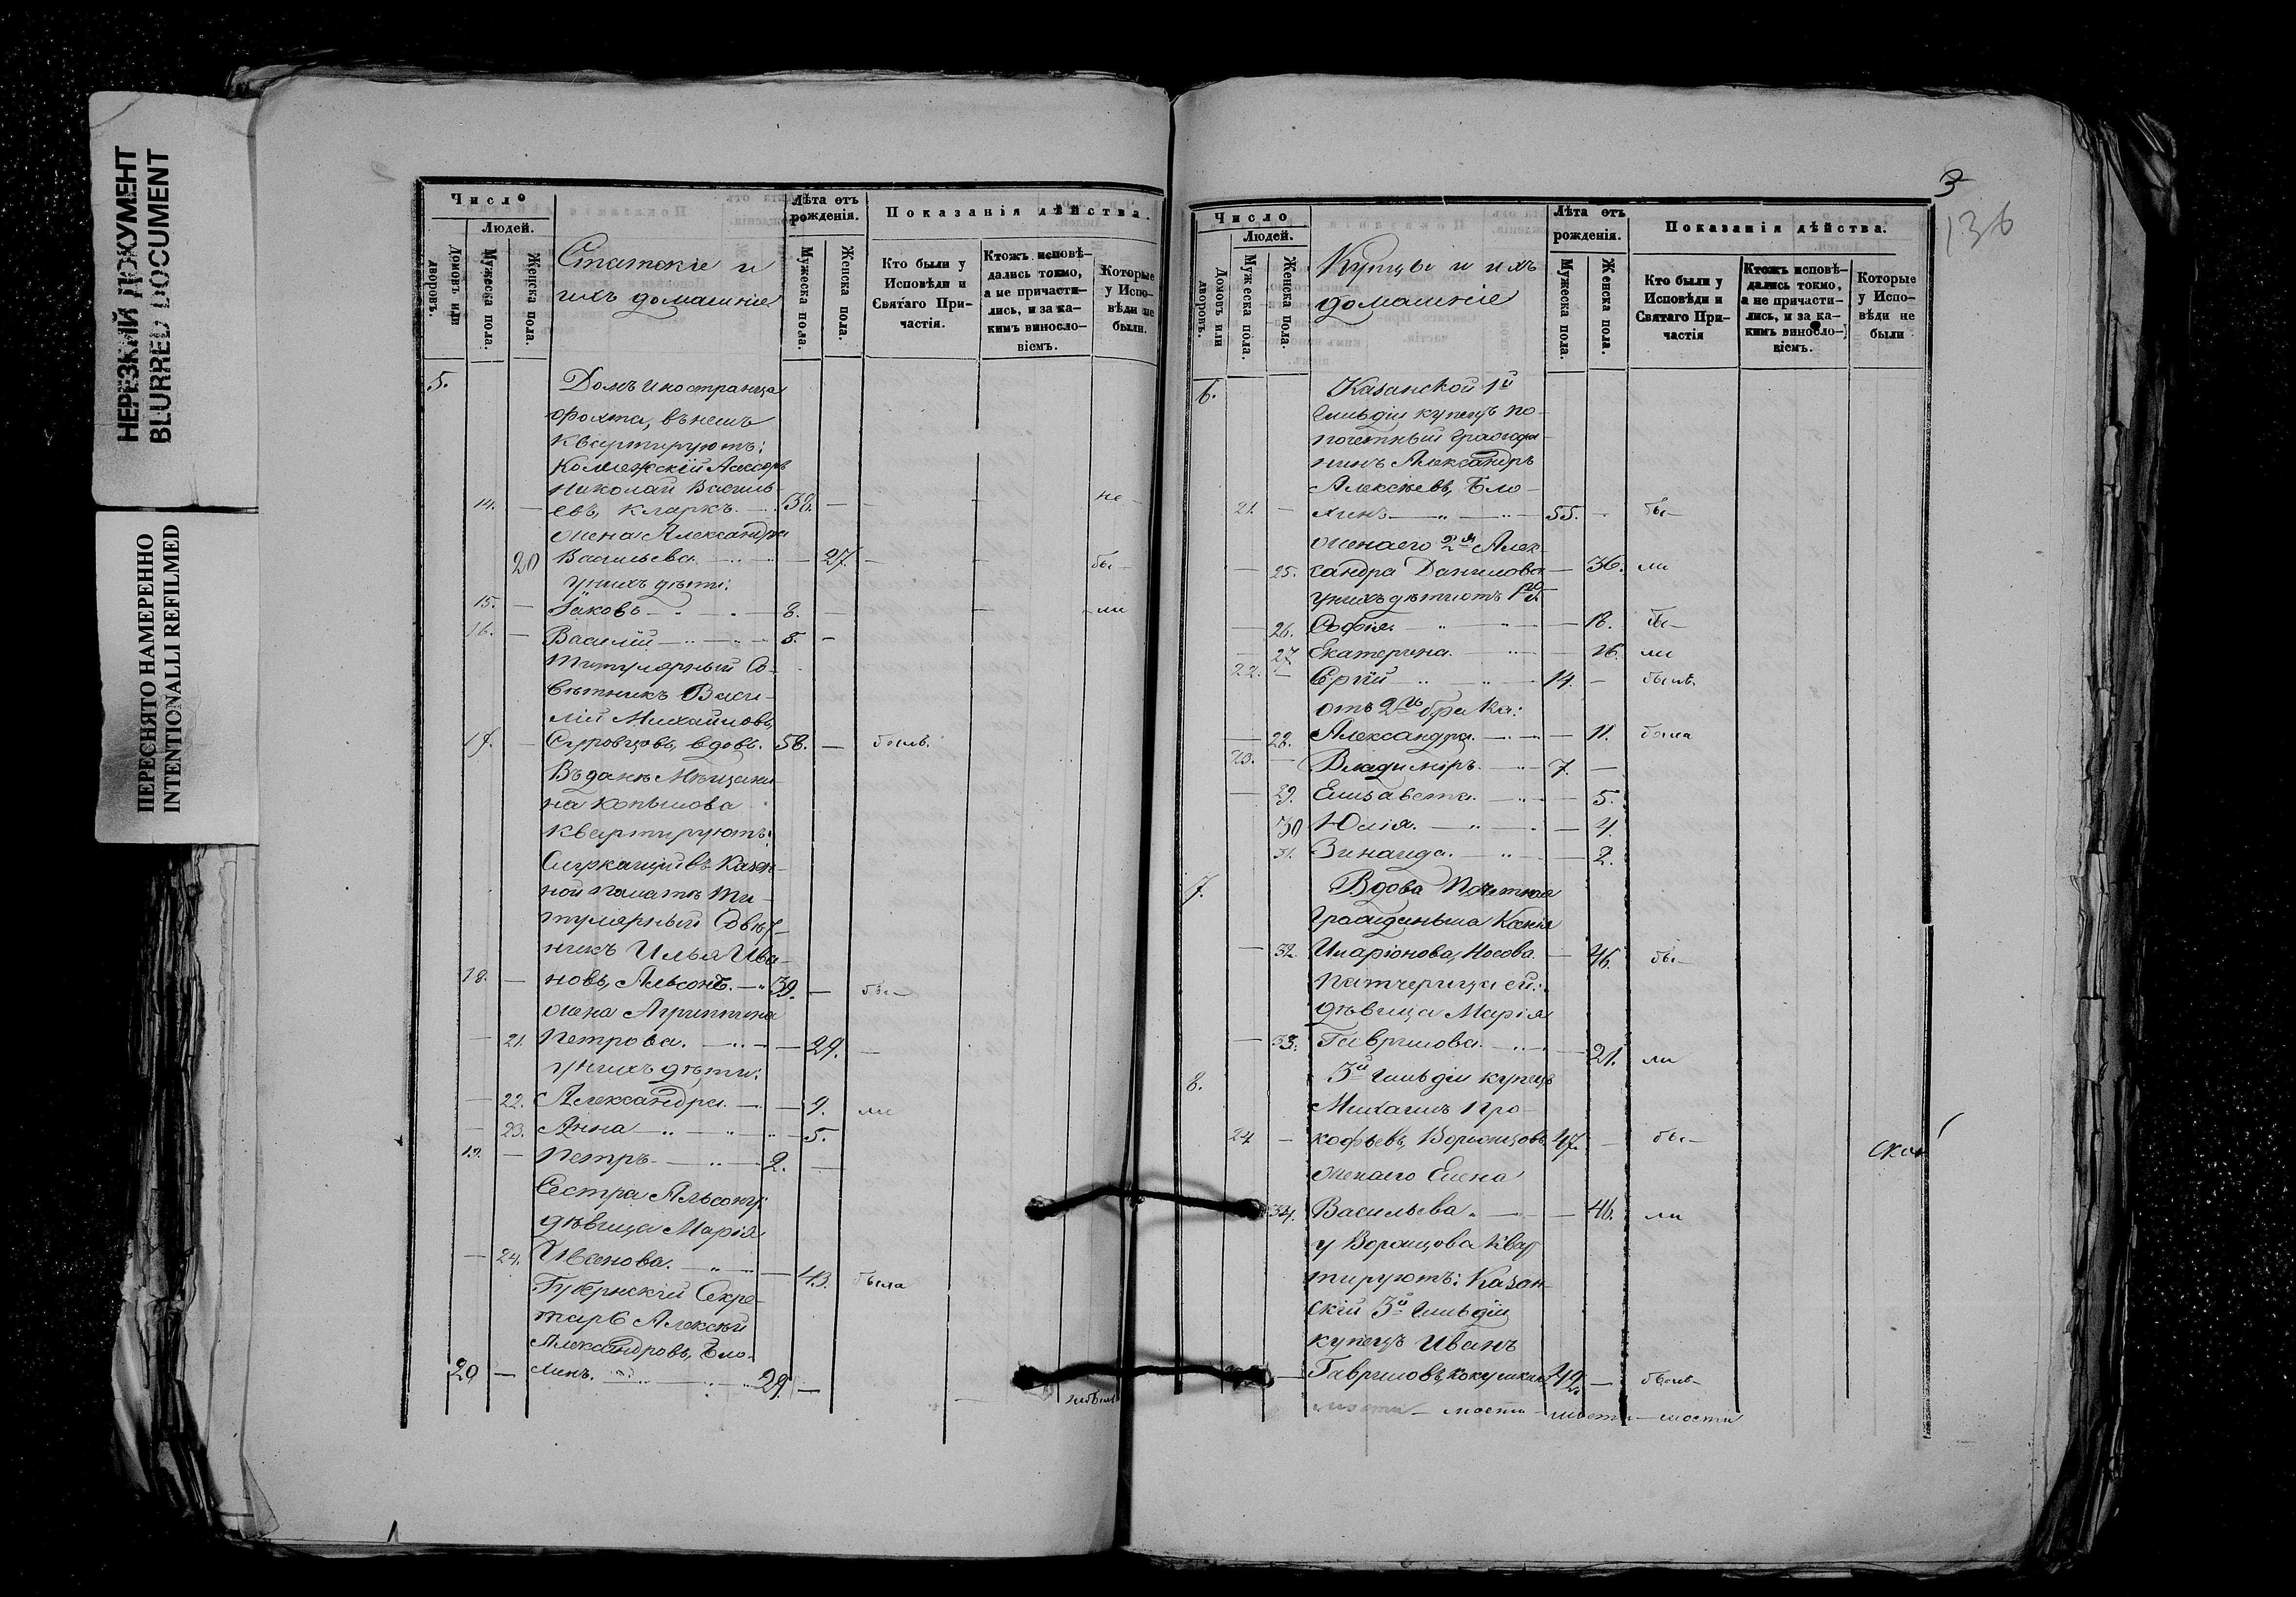 НЕРЕЗКИЙ ДОКУМЕНТ
BLURRED DOCUMENT
ПЕРЕСНЯТО НАМЕРЕННО
INTENTIONALLI REFILMED
Число
Людей.
Домовъ или дворовъ.
Мужеска пола.
Женска пола.
Статскіе и
ихъ домашніе
Лѣта отъ рожденія.
Мужеска пола.
Женска пола.
Показанія дѣйства.
Кто были у Исповѣди и Святаго Причастія.
Ктожъ исповѣдались токмо, а не причастились, и за какимъ винословіемъ.
Которые у Исповѣди не были.
5. Домъ иностранца
Фохта, въ немъ
квартируютъ:
Коллежскій Асессоръ
Николай Василь-
14. — евъ, Кларкъ. — 38. — не
жена Александра
20 Васильева. — 27. — бы-
у нихъ дѣти:
15. — Іаковъ — 8. — ли
16. — Василій — 5. —
Титулярный Со-
вѣтникъ Васи-
лій Михайловъ,
17. — Суровцовъ, вдовъ. 58. — былъ.
Въ домѣ Мѣщани-
на Копылова
квартируютъ:
Служащій въ Казен-
ной палатѣ Ти-
тулярный Совѣт-
никъ Илья Ива-
18. — новъ, Альсонъ. — 39. — бы-
жена Агриппина
— 21. Петрова. — 29. —
у нихъ дѣти:
— 22. Александра. — 9. ли
— 23. Анна — 5.
19. — Петръ — 2. —
Сестра Альсону:
дѣвица Марія
— 24. Иванова. — 43. была
Губернскій Секре-
тарь Алексѣй
Александровъ, Бло-
20 — хинъ. — 29. — не былъ
3
136
Число
Людей.
Домовъ или дворовъ.
Мужеска пола.
Женска пола.
Купцы и ихъ
домашніе
Лѣта отъ рожденія.
Мужеска пола.
Женска пола.
Показанія дѣйства.
Кто были у Исповѣди и Святаго Причастія
Ктожъ исповѣдались токмо, а не причастились, и за какимъ винословіемъ.
Которые у Исповѣди не были
6. Казанской 1й
гильдіи купецъ по-
почетный гражда-
нинъ Александръ
Алексѣевъ, Бло-
21. — хинъ — 55. — бы-
жена его 2я Алек-
— 25. сандра Данилова — 36. ли
у нихъ дѣти отъ 1го
— 26. Софія. — 18. бы-
— 27. Екатерина. — 16. ли
22. — Сергій — 14. — былъ.
отъ 2го брака:
— 28. Александра. — 11. была
23. — Владиміръ. — 7. —
— 29. Елисавета. — 5.
30 Юлія. — 4.
31. Зинаида. — 2.
7. Вдова Почетная
Гражданка Ксенія
— 32. Иларіонова, Носова. — 46. бы-
Патчерица ей:
дѣвица Марія
— 33. Гаврилова. — 21. ли
8. 3й гильдіи купецъ
Михаилъ Про-
24 — кофьевъ, Воронцовъ 47. — бы-
жена его Елена
— 34. Васильева. — 46. ли
у Воронцова квар-
тируютъ: Казан-
скій 3й гильдіи
купецъ Иванъ
— Гавриловъ, Кокушкинъ 49. — былъ-
мости — мости — мости — мости